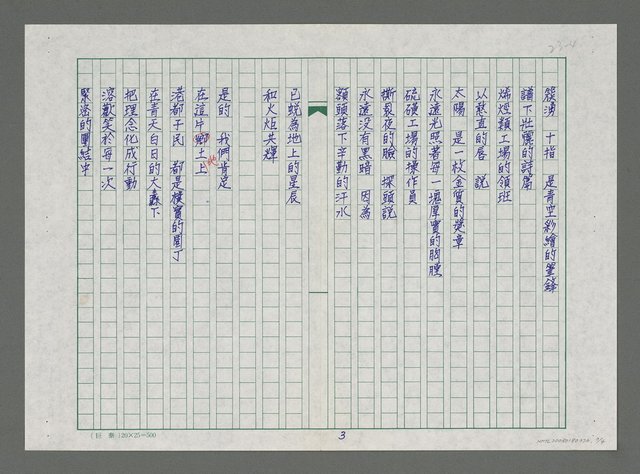 簇湧　十指　是青空彩繪的筆鋒
譜下壯麗的詩篇
烯烴類工場的領班
以憨直的唇　說
太陽　是一枚金質的獎章
永遠光照著每一塊厚實的胸膛
硫磺工場的操作員
撕裂夜的臉　探頭說
永遠沒有黑暗　因為
額頭落下辛勤的汗水
已蛻為地上的星辰
和火炬共輝
是的　我們肯定
在這片土上
港都子民　都是樸實的園丁
在青天白日的大纛下
把理念化成行動
溶歡笑於每一次
緊密的團結中
3
（巨 集）20×25=500
23-4